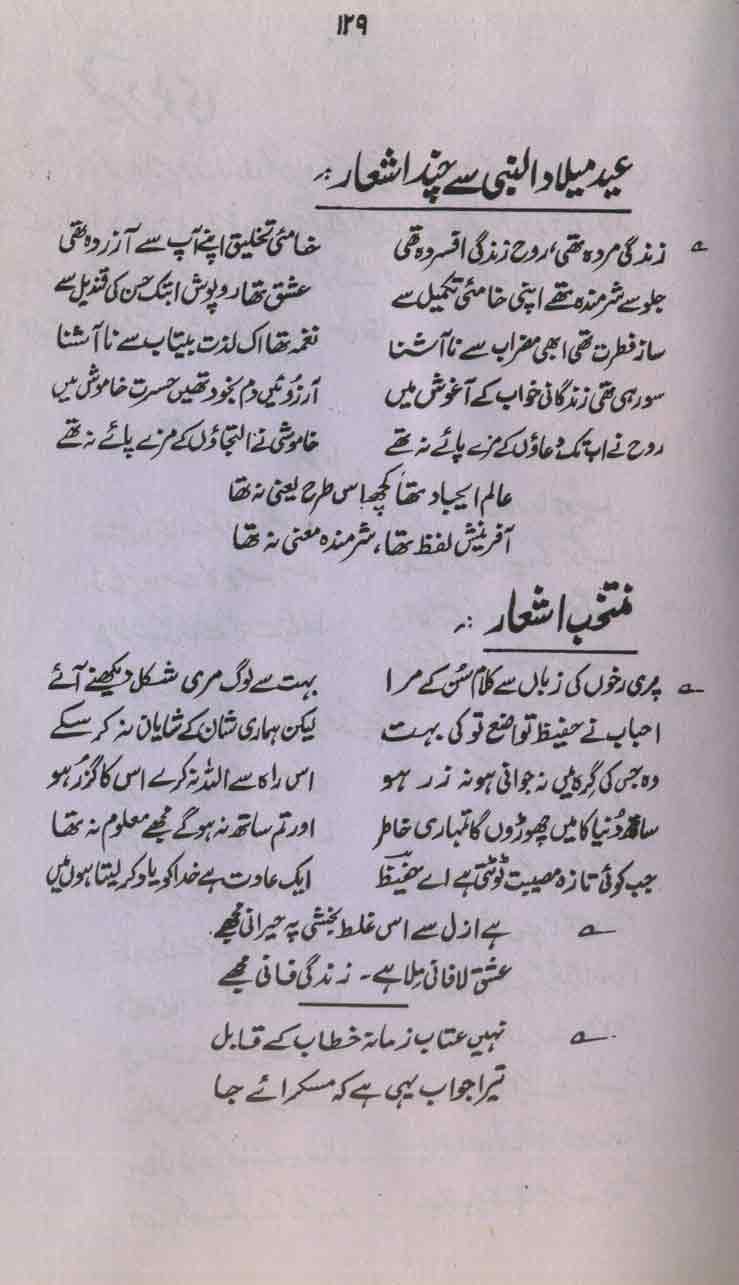 ۱۲۹
عید میلاد النبی سے چند اشعار :۔
؎ زندگی مردہ تھی، روح زندگی افسردہ تھی خامئی تخلیق اپنے آپ سے آزردہ تھی
جلوے شرمندہ تھے اپنی خامئی تکمیل سے عشق تھا روپوش ابتک حسن کی قندیل سے
ساز فطرت تھی ابھی مضراب سے ناآشنا نغمہ تھا اک لذت بیتاب سے ناآشنا
سو رہی تھی زندگانی خواب کے آغوش میں آرزوئیں دم بخود تھیں حسرت خاموش میں
روح نے اب تک دعاؤں کے مزے پائے نہ تھے خاموشی نے التجاؤں کے مزے پائے نہ تھے
عالم ایجاد تھا کچھ اس طرح یعنی نہ تھا
آفرینش لفظ تھا، شرمندہ معنی نہ تھا
منتخب اشعار :۔
؎ پری رخوں کی زباں سے کلام سن کے مرا بہت سے لوگ مری شکل دیکھنے آئے
احباب نے حفیظ تواضع تو کی بہت لیکن ہماری شان کے شایان نہ کر سکے
وہ جس کی گرہ میں نہ جوانی ہو نہ زر ہو اس راہ سے اللہ نہ کرے اس کا گزر ہو
ساتھ دُنیا کا میں چھوڑوں گا تمہاری خاطر اور تم ساتھ نہ ہوگے مجھے معلوم نہ تھا
جب کوئی تازہ مصیبت ٹوٹتی ہے اے حفیظؔ ایک عادت ہے خدا کو یاد کر لیتا ہوں میں
؎ ہے ازل سے اس غلط بخشی پہ حیرانی مجھے
عشق لافانی ملا ہے۔ زندگی فانی مجھے
؎ نہیں عتاب زمانہ خطاب کے قابل
تیرا جواب یہی ہے کہ مسکرائے جا